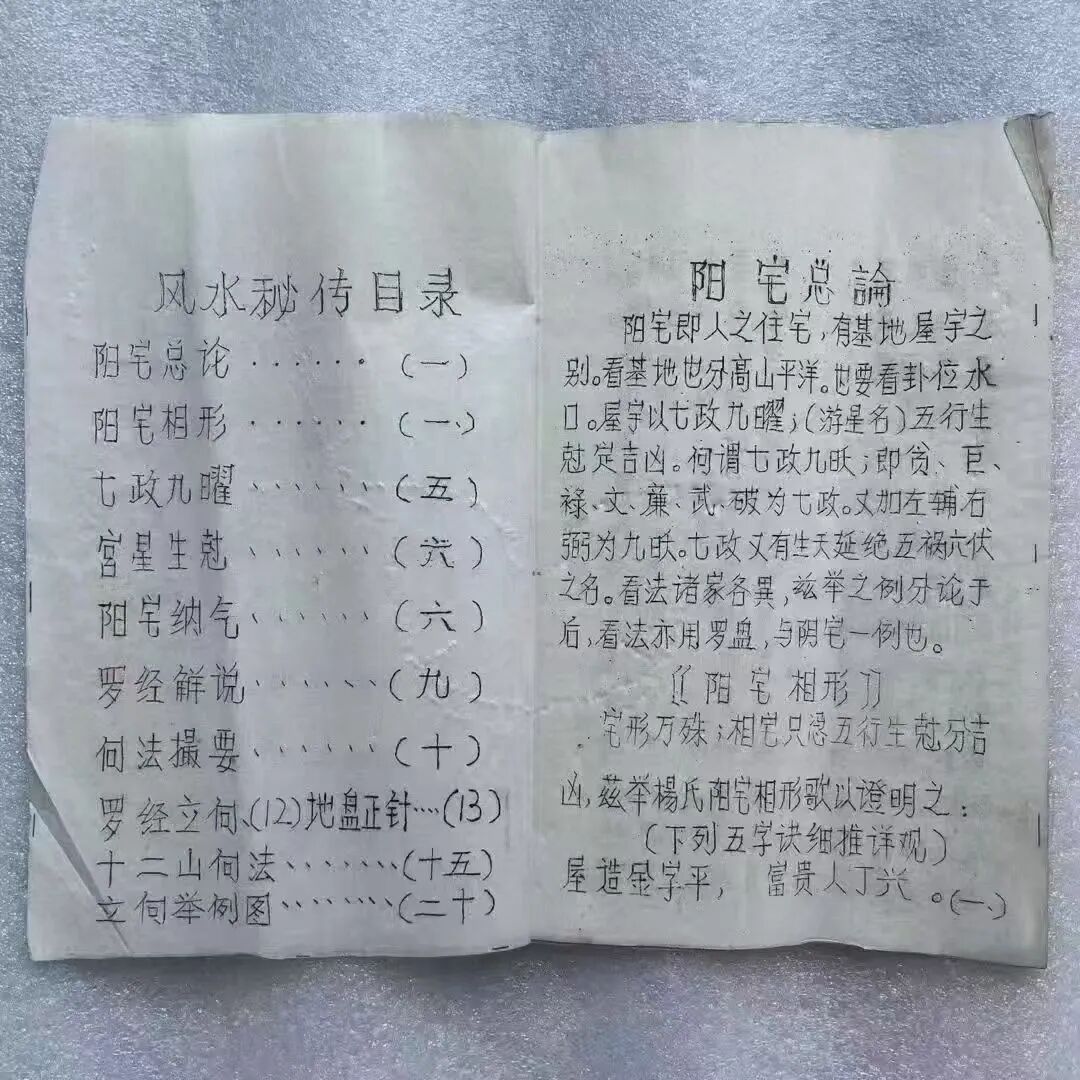 风水秘传目录
阳宅总论······(一)
阳宅相形······(一、)
七政九曜、、、、、、(五)
宫星生尅、、、、、、(六)
阳宅纳气、、、、、、(六)
罗经解说、、、、、、(九)
向法撮要、、、、、、(十)
罗经立向、(12)地盘正针…(13)
十二山向法、、、、、、(十五)
立向举例图、、、、、、、(二十)
阳宅总論
阳宅即人之住宅,有基地屋宇之
别。看基地也分高山平洋。也要看卦位水
口。屋宇以七政九曜;(游星名)五行生
尅定吉凶。何谓七政九昳;即贪、巨、
禄、文、廉、武、破为七政。又加左辅右
弼为九昳。七政又有生天延绝五祸六伏
之名。看法诸家各異,兹举之例分论于
后,看法亦用罗盘,与阴宅一例也。
〖阳宅相形〗
宅形万殊;相宅只忌五行生尅分吉
凶,兹举楊氏阳宅相形歌以證明之:
(下列五字诀细推详观)
屋造金字平, 富贵人丁兴。(一、)